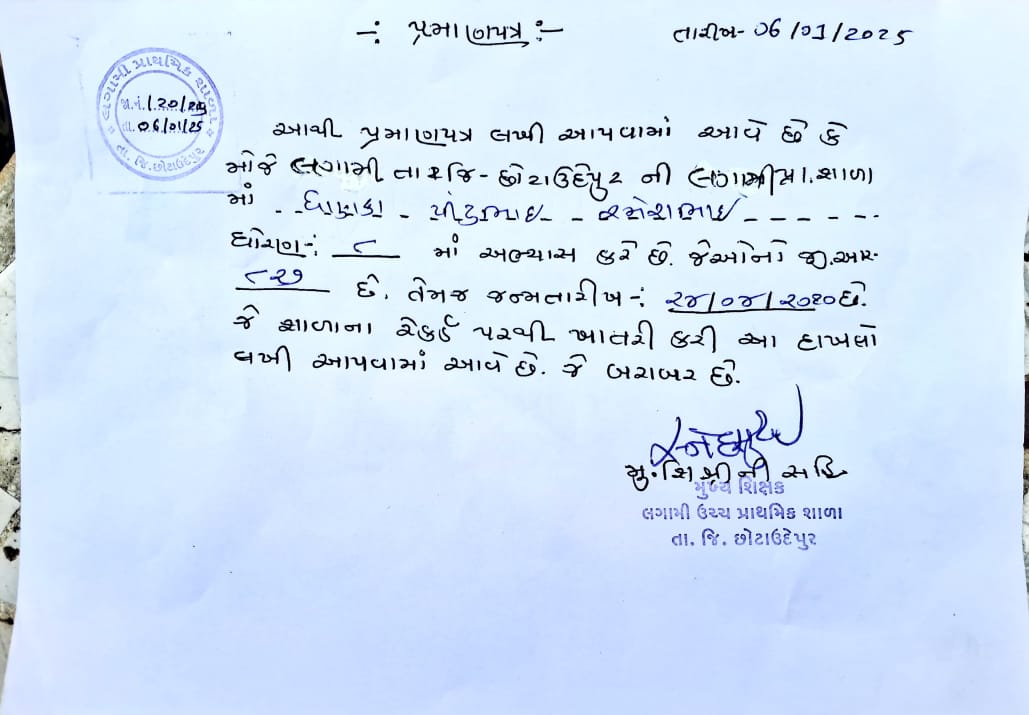 -: પ્રમાણપત્ર :-
તારીખ- 06/01/2025
લગામી પ્રાથમિક શાળા
જા.નં./20/
તા.06/01/25
તા. જિ.છોટાઉદેપુર
આથી પ્રમાણપત્ર લખી આપવામાં આવે છે કે
મોજે લગામી તા૨જિ-છોટાઉદેપુર ની લગામી પ્રા.શાળા
માં - - ધાણકા - પીંટુભાઇ - - રમેશભાઇ - - - - - -
ધોરણ-: ૮ માં અભ્યાસ કરે છે. જેઓનો જી.આર-
૮૨૭ છે. તેમજ જન્મતારીખ-: ૨૪/૦૪/૨૦૧૦ છે.
જે શાળાના રેકર્ડ પરથી ખાતરી કરી આ દાખલો
લખી આપવામાં આવે છે. જે બરાબર છે.
મુ.શિ શ્રીની સહિ
મુખ્ય શિક્ષક
લગામી ઉચ્ચ પ્રાથમિક શાળા
તા. જિ. છોટાઉદેપુર